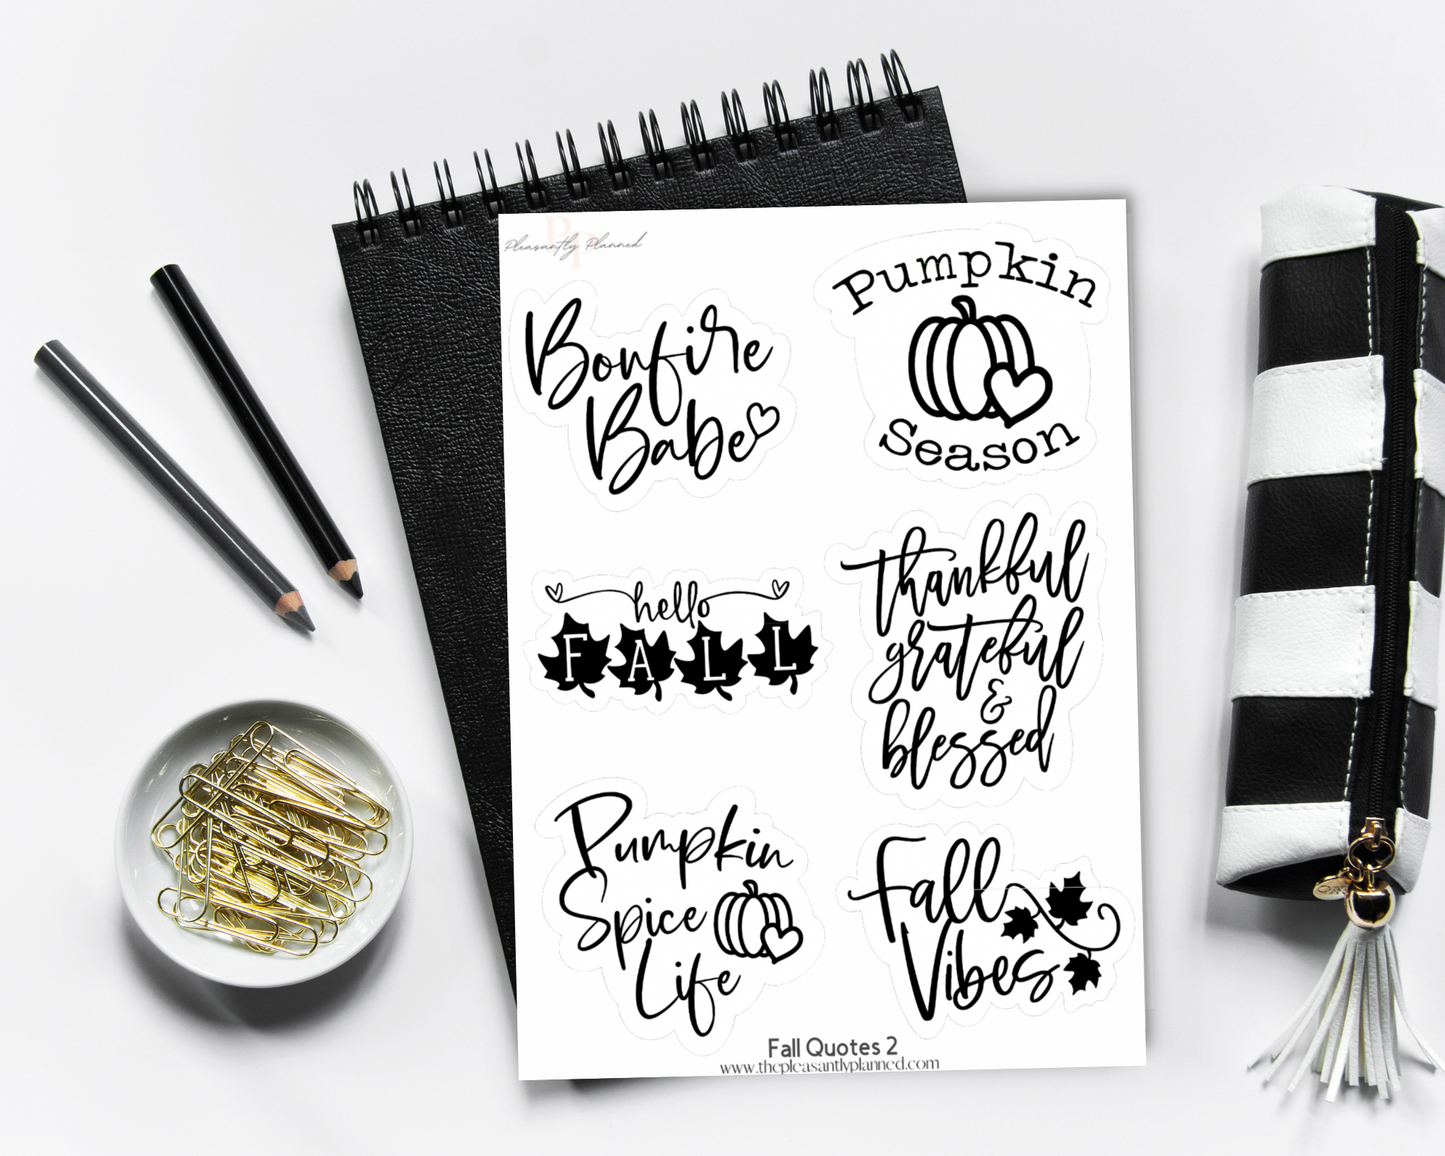 Pleasantly Planned
PP
Bonfire
Babe
Pumpkin
Season
hello
FALL
thankful
grateful
&
blessed
Pumpkin
Spice
Life
Fall
Vibes
Fall Quotes 2
www.thepleasantlyplanned.com